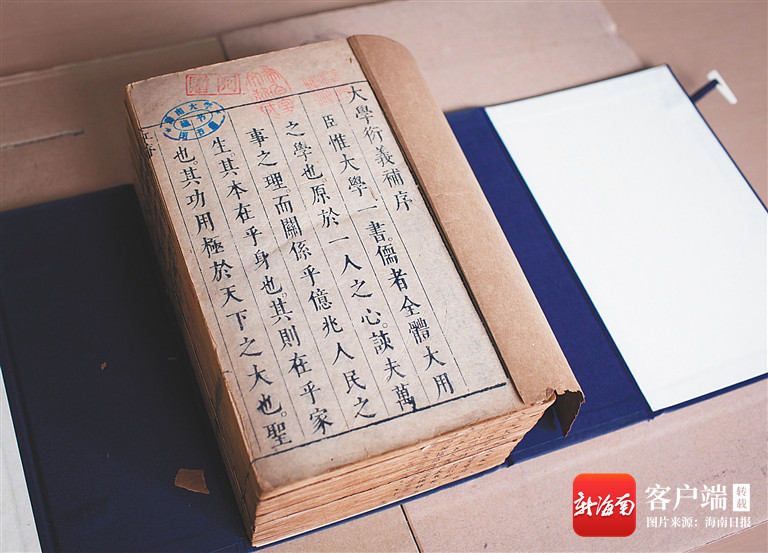 大學衍義補序
臣惟大學一書。儒者全體大用
之學也原於一人之心。該夫萬
事之理。而關係乎億兆人民之
生其本在乎身也。其則在乎家
也。其功用極於天下之大也。聖
海南大学
藏书
图书馆
新海南
客户端 转载
图片来源：海南日报